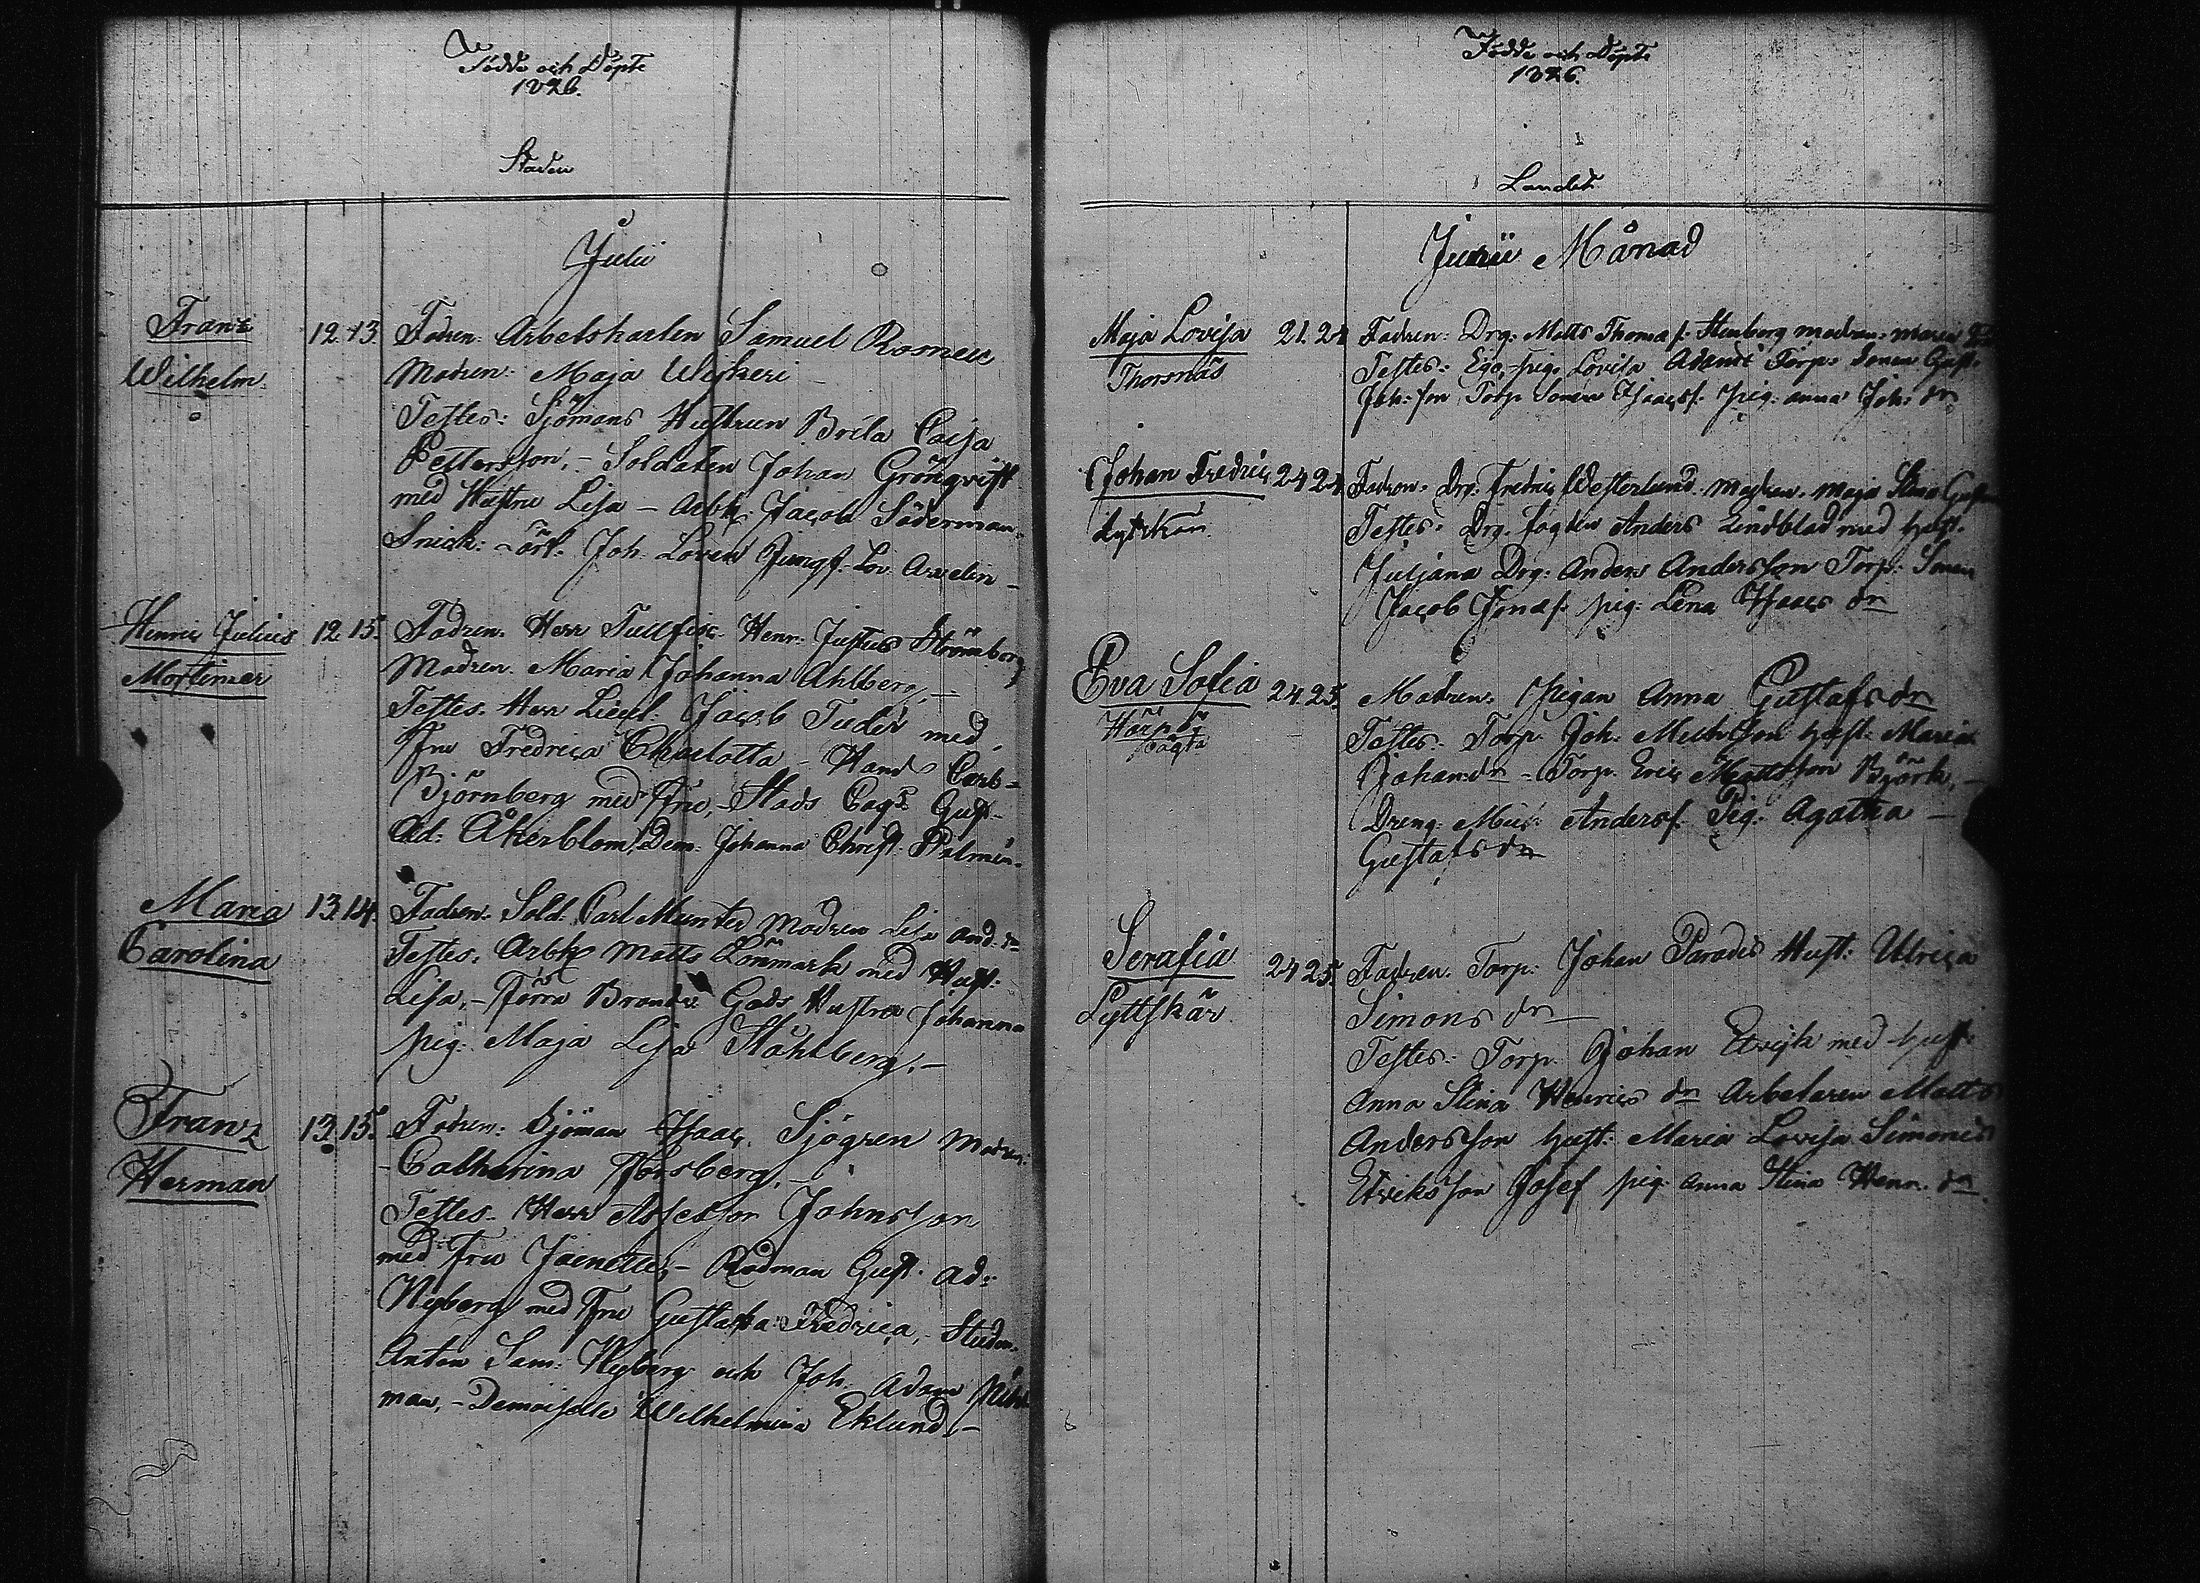 Födde och Döpte
1826.
Staden
Julii
Franz
Wilhelm
12. 13.
Fadren: Arbetskarlen Samuel Rosnell
Modren: Maja Wiskeri
Testes: Sjömans Hustrun Brita Caisa
Pettersson, – Soldaten Johan Grönqvist
med Hustru Lisa – Arbk: Jacob Söderman
Snick: – Joh. Loven Jungf. Lov.
Henric Julius
Mortimer
12. 15.
Fadren. Herr Tullfisc. Henr. Justus Strömborg
Modren. Maria Johanna Ahlberg, –
Testes. Herr Lieut: Jacob Tuder med
Fru Fredrica Charlotta – Hand Carl
Björnberg med Fru, – Stads Cas: Gust.
Ad: Åkerblom, Dem. Johanna Christ: Palmén
Maria
Carolina
13. 14.
Fadren. Sold: Carl Munter Modren Lisa And. dr
Testes. Arbk Matts Lönmark med Hust:
Lisa, – Förra Brands Gads Hustru Johanna
pig. Maja Lisa Ståhlberg. –
Franz
Herman
13. 15.
Fadren: Sjöman Isaac Sjögren Modren:
– Catharina Forsberg. –
Testes – Herr Assessor Johnsson
med Fru Jaenette, – Rådman Gust. Ad:
Nyberg med Fru Gustava Fredrica, – Studen.
Anton Sam: Nyberg och Joh. Adam
man, – Demoiselle Wilhelmina Eklund, –
Födde och Döpte
1826.
Landet
Junii Månad
Maja Lovisa
Thorsnäs
21. 24
Fadren: Drg: Matts Thomas f. Stenberg modren: Maria
Testes: Ego, – pig. Lovisa Torp: Sonen Gust.
Joh: son Torp Sonen Isaacsf. pig: Anna Joh: dr
Johan Fredric
24 24
Fadren: Drg: Fredric Westerlund. Modren. Maja Stina
Testes: Drg. fogden Anders Lindblad med Hust.
Juliana Drg: Anders Andersson Torp: Sonen
Jacob Jonasf. pig: Lena Isaacs dr
Eva Sofia
24 25.
Modren: Pigan Anna Gustafs dr
Testes: Torp: Joh. Michelsson Hust: Maria
Johan dr – Torp. Eric Mattsson Björk, –
Dreng. Mich: Andersf. Pig: Agatha –
Gustafs dr
Serafia
Lyttskär
24 25.
Fadren: Torp: Johan Paradis Hust: Ulrica
Simons dr –
Testes: Torp. Johan med Hust:
Anna Stina Henrics dr Arbetaren Matts
Andersson Hust: Maria Lovisa Simonis
Josef pig. Anna Stina Henr. dr.